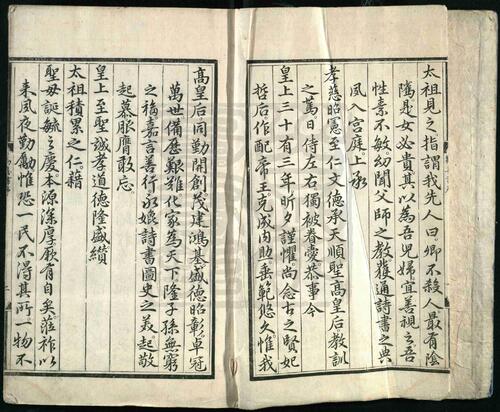 太祖見之指謂我先人曰卿不殺人最有陰
隲是女必貴其以為吾兒婦宜善視之吾
性素不敏幼聞父師之教獲通詩書之典
夙入宮庭上承
孝慈昭憲至仁文德承天順聖高皇后教訓
之篤日侍左右獨被眷愛恭事今
皇上三十有三年昕夕謹懼尚念古之賢妃
哲后作配帝王克咸內助垂範悠久惟我
高皇后同勤開創茂建鴻基盛德昭彰卓冠
萬世備歷艱難化家為天下隆子孫無窮
之福嘉言善行永媲詩書圖史之美起敬
起慕服膺敢忘
皇上至聖誠孝道德隆盛纘
太祖積累之仁藉
聖母誕毓之慶本源深厚厥有自矣蒞祚以
來夙夜勤勵惟恐一民不得其所一物不